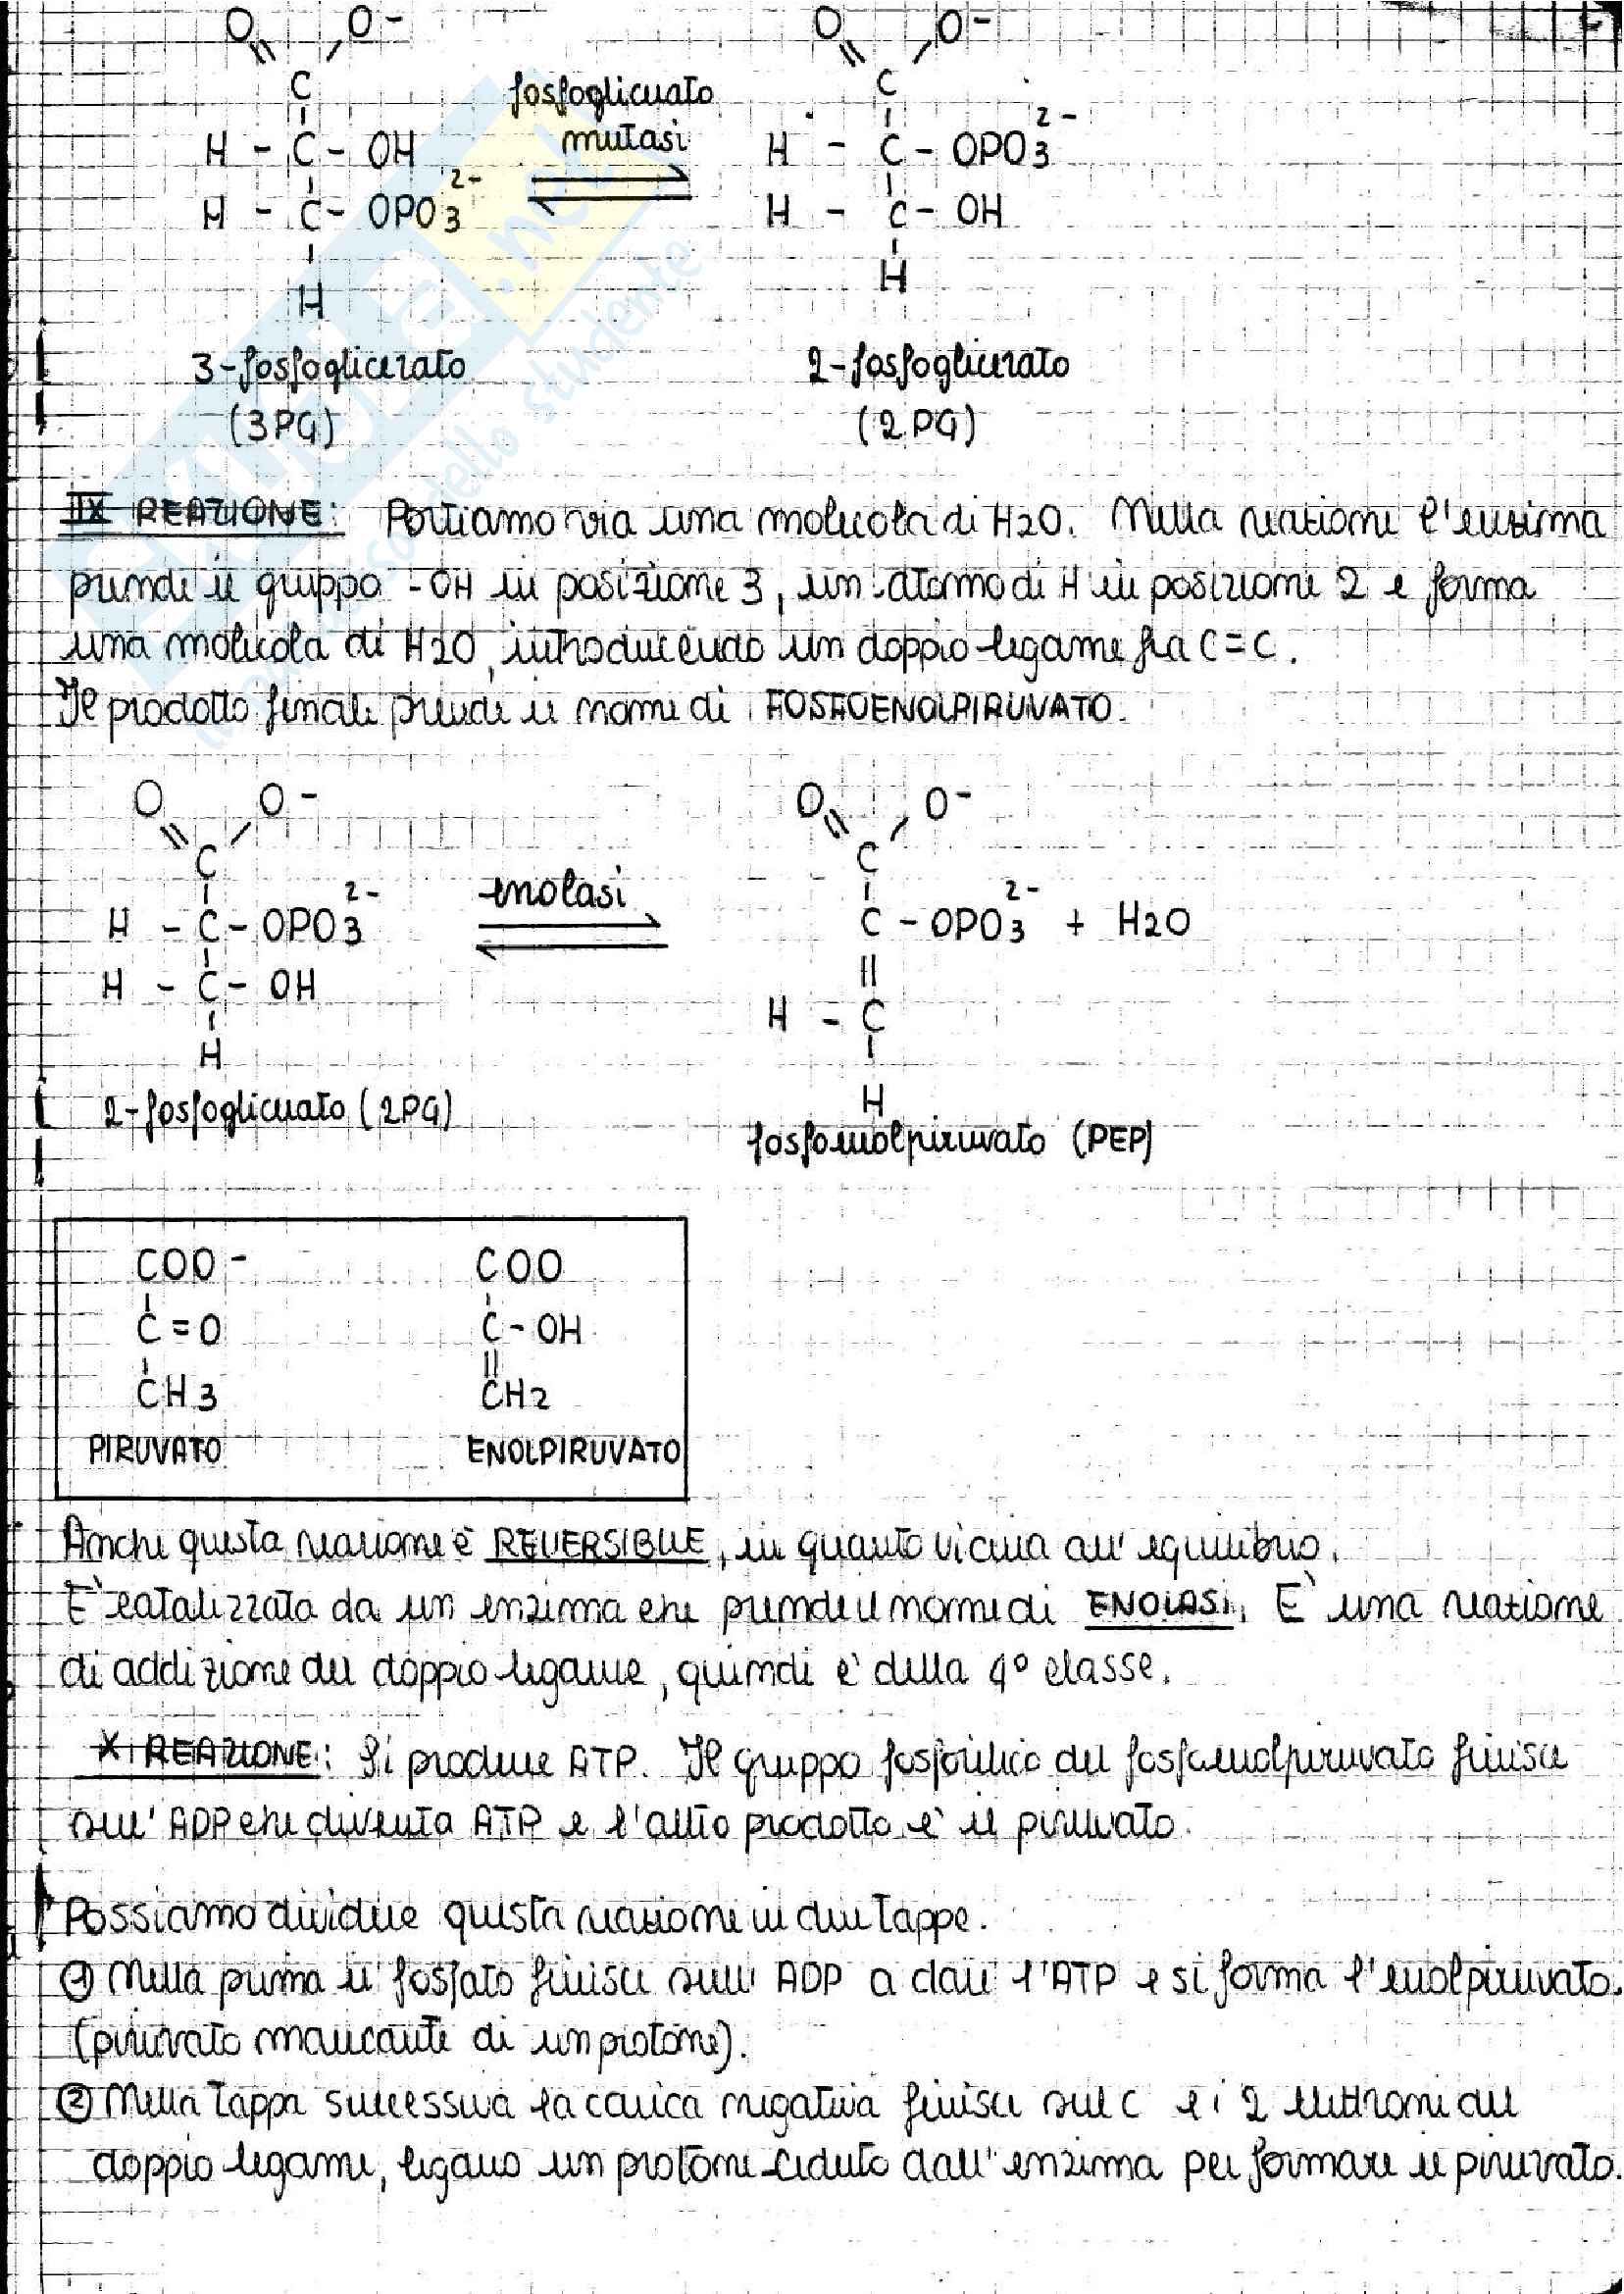 O O-
O O-
C
C
fosfoglicerato
mutasi
H - C - OH
H - C - OPO3 2-
H - C - OPO3 2-
H - C - OH
H
H
3-fosfoglicerato
2-fosfoglicerato
(3PG)
(2PG)
IX REAZIONE: Portiamo via una molecola di H2O. Nella reazione l'enzima
prende il gruppo -OH in posizione 3, un atomo di H in posizione 2 e forma
una molecola di H2O, introducendo un doppio legame fra C=C.
Il prodotto finale prende il nome di FOSFOENOLPIRUVATO.
O O-
O O-
C
C
enolasi
H - C - OPO3 2-
C - OPO3 2- + H2O
H - C - OH
H - C
H
H
2-fosfoglicerato (2PG)
fosfoenolpiruvato (PEP)
COO- COO
C=O C-OH
CH3 CH2
PIRUVATO ENOLPIRUVATO
Anche questa reazione è REVERSIBILE, in quanto vicina all'equilibrio.
E' catalizzata da un enzima che prende il nome di ENOLASI. E' una reazione
di addizione del doppio legame, quindi è della 4° classe.
X REAZIONE: Si produce ATP. Il gruppo fosforilico del fosfoenolpiruvato finisce
sull'ADP che diventa ATP e l'altro prodotto è il piruvato.
Possiamo dividere questa reazione in due tappe.
① Nella prima il fosfato finisce sull'ADP a dare l'ATP e si forma l'enolpiruvato.
(piruvato mancante di un protone).
② Nella tappa successiva la carica negativa finisce sul C e i 2 elettroni del
doppio legame, legano un protone ceduto dall'enzima per formare il piruvato.